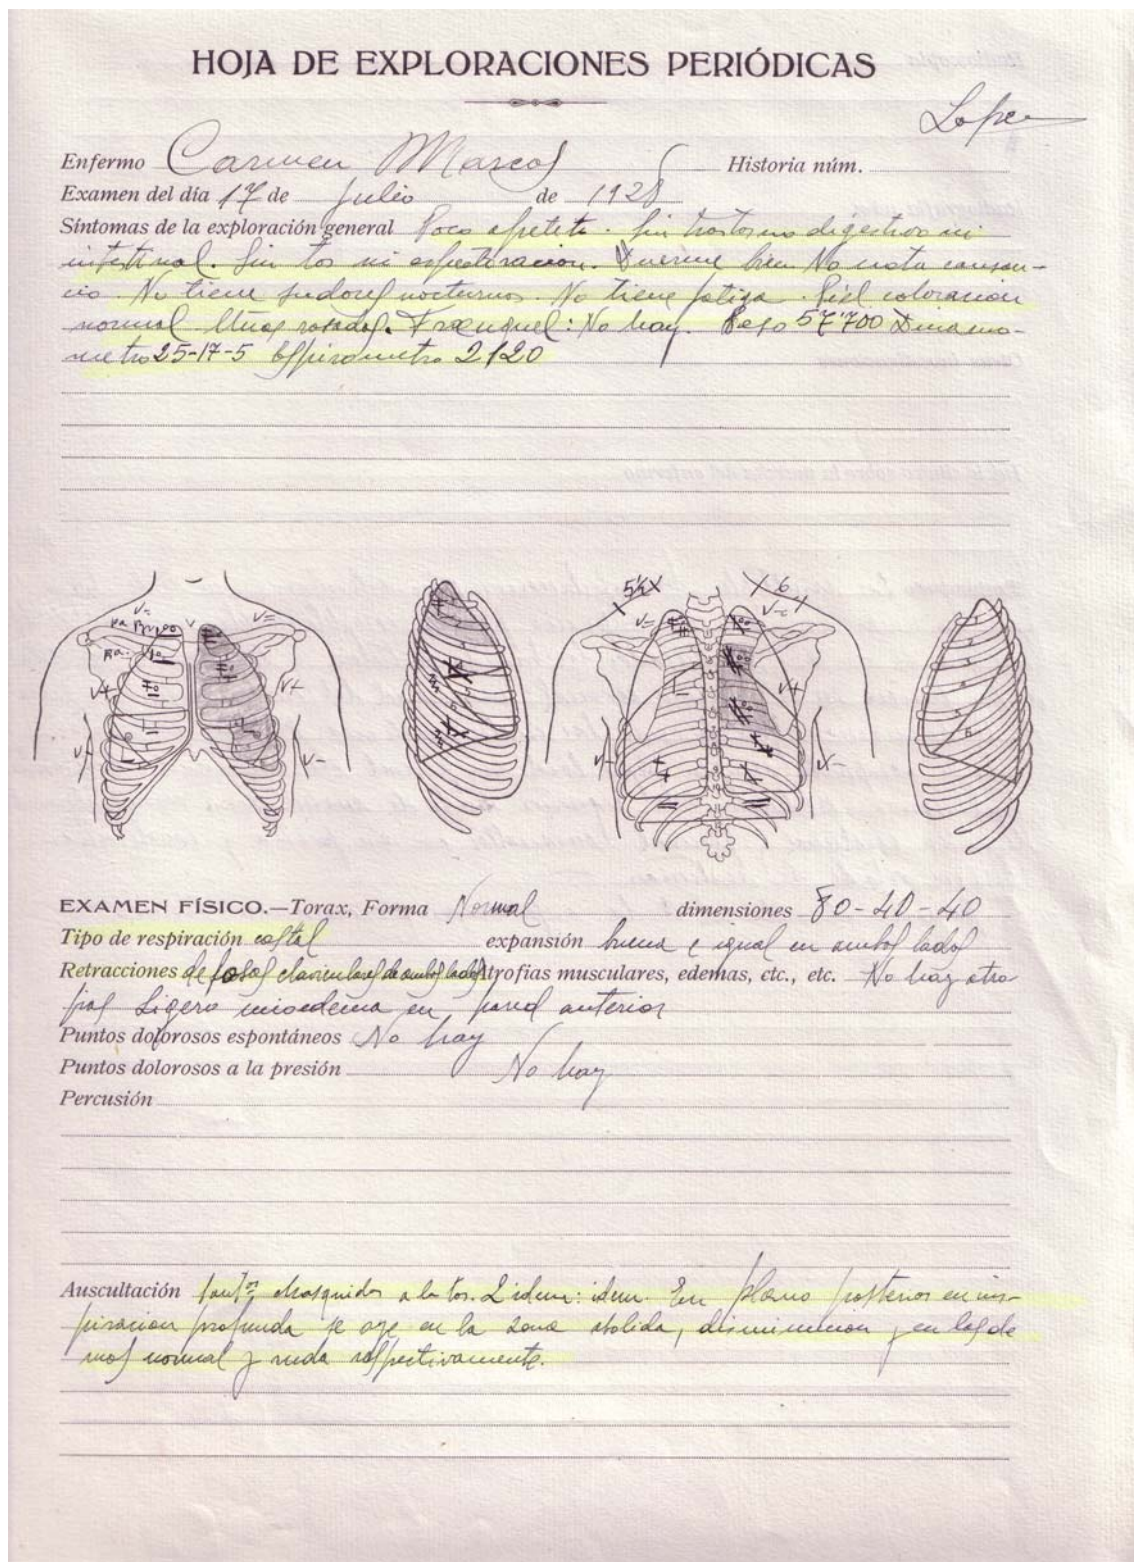 HOJA DE EXPLORACIONES PERIÓDICAS
Enfermo Carmen Marcos Historia núm.
Examen del día 17 de julio de 1928
Síntomas de la exploración general Poco apetito. Sin trastorno digestivo ni
intestinal. Sin tos ni espectoracion. Duerme bien No nota cansan-
cio. No tiene sudores nocturnos. No tiene fatiga. Piel coloración
normal Uñas rosadas. No hay. Peso 57'700 Dinamo-
metro 25-17-5 Espirometro 2120
5½ 6
V= V= V= V-
V+ V+ V+
V- V- V- V-
EXAMEN FÍSICO.—Torax, Forma Normal dimensiones 80-40-40
Tipo de respiración costal expansión buena e igual en ambos lados
Retracciones de fosas claviculares de ambos lados Atrofias musculares, edemas, etc., etc. No hay atro
fias Ligero mioedema en pared anterior
Puntos dolorosos espontáneos No hay
Puntos dolorosos a la presión No hay
Percusión
Auscultación chasquidos a la tos. 2 idem: idem. En plano posterior en ins-
piracion profunda se oye en la zona abolida, disminucion y en las de
mas normal y ruda respectivamente.